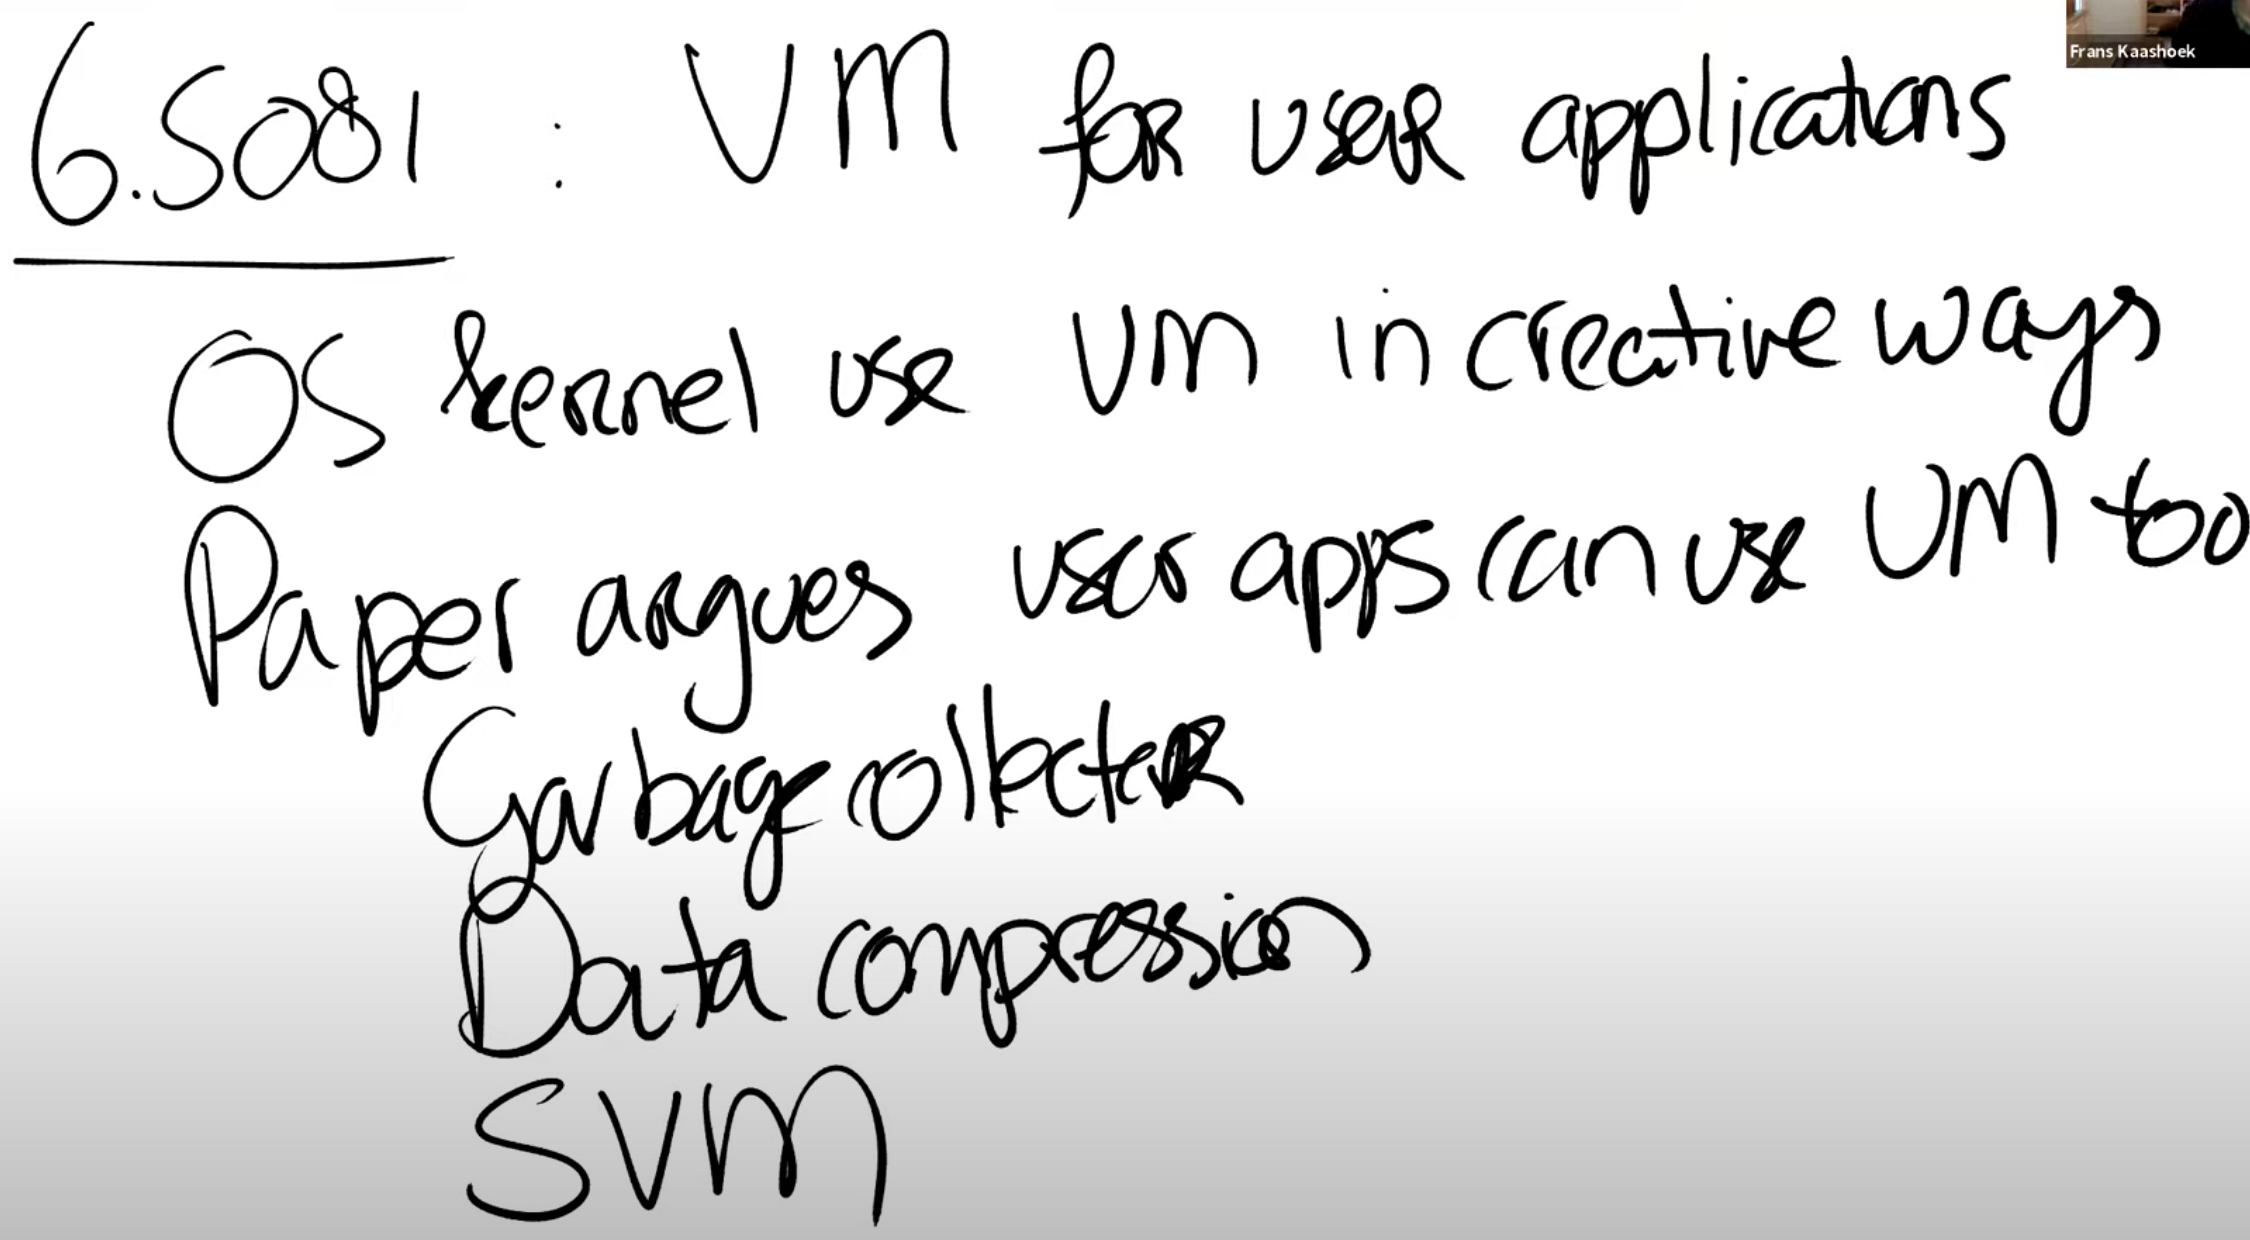 Frans Kaashoek
6.S081 : VM for user applications
OS kernel use VM in creative ways
Paper argues user apps can use VM too
Garbage collector
Data compression
SVM